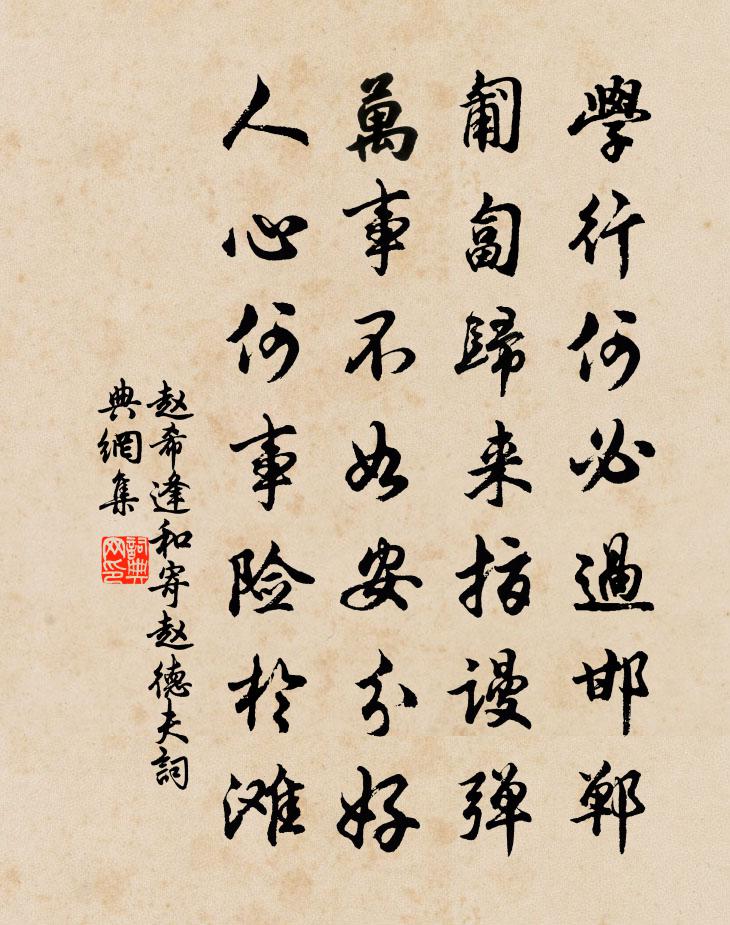 學行何必過邯鄲
匍匐歸来指謾弹
萬事不如安分好
人心何事险於滩
赵希逢和寄赵德夫詞
典網集
詞典
网印